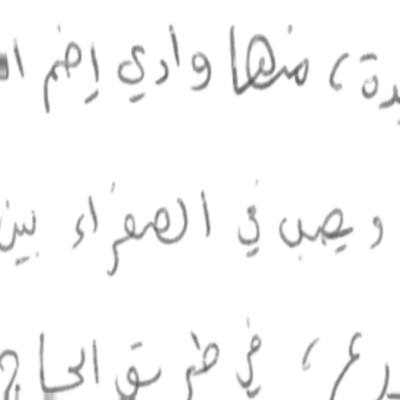 يدة، منها وادي إضم
ويصب في الصفراء بين
في طريق الحاج